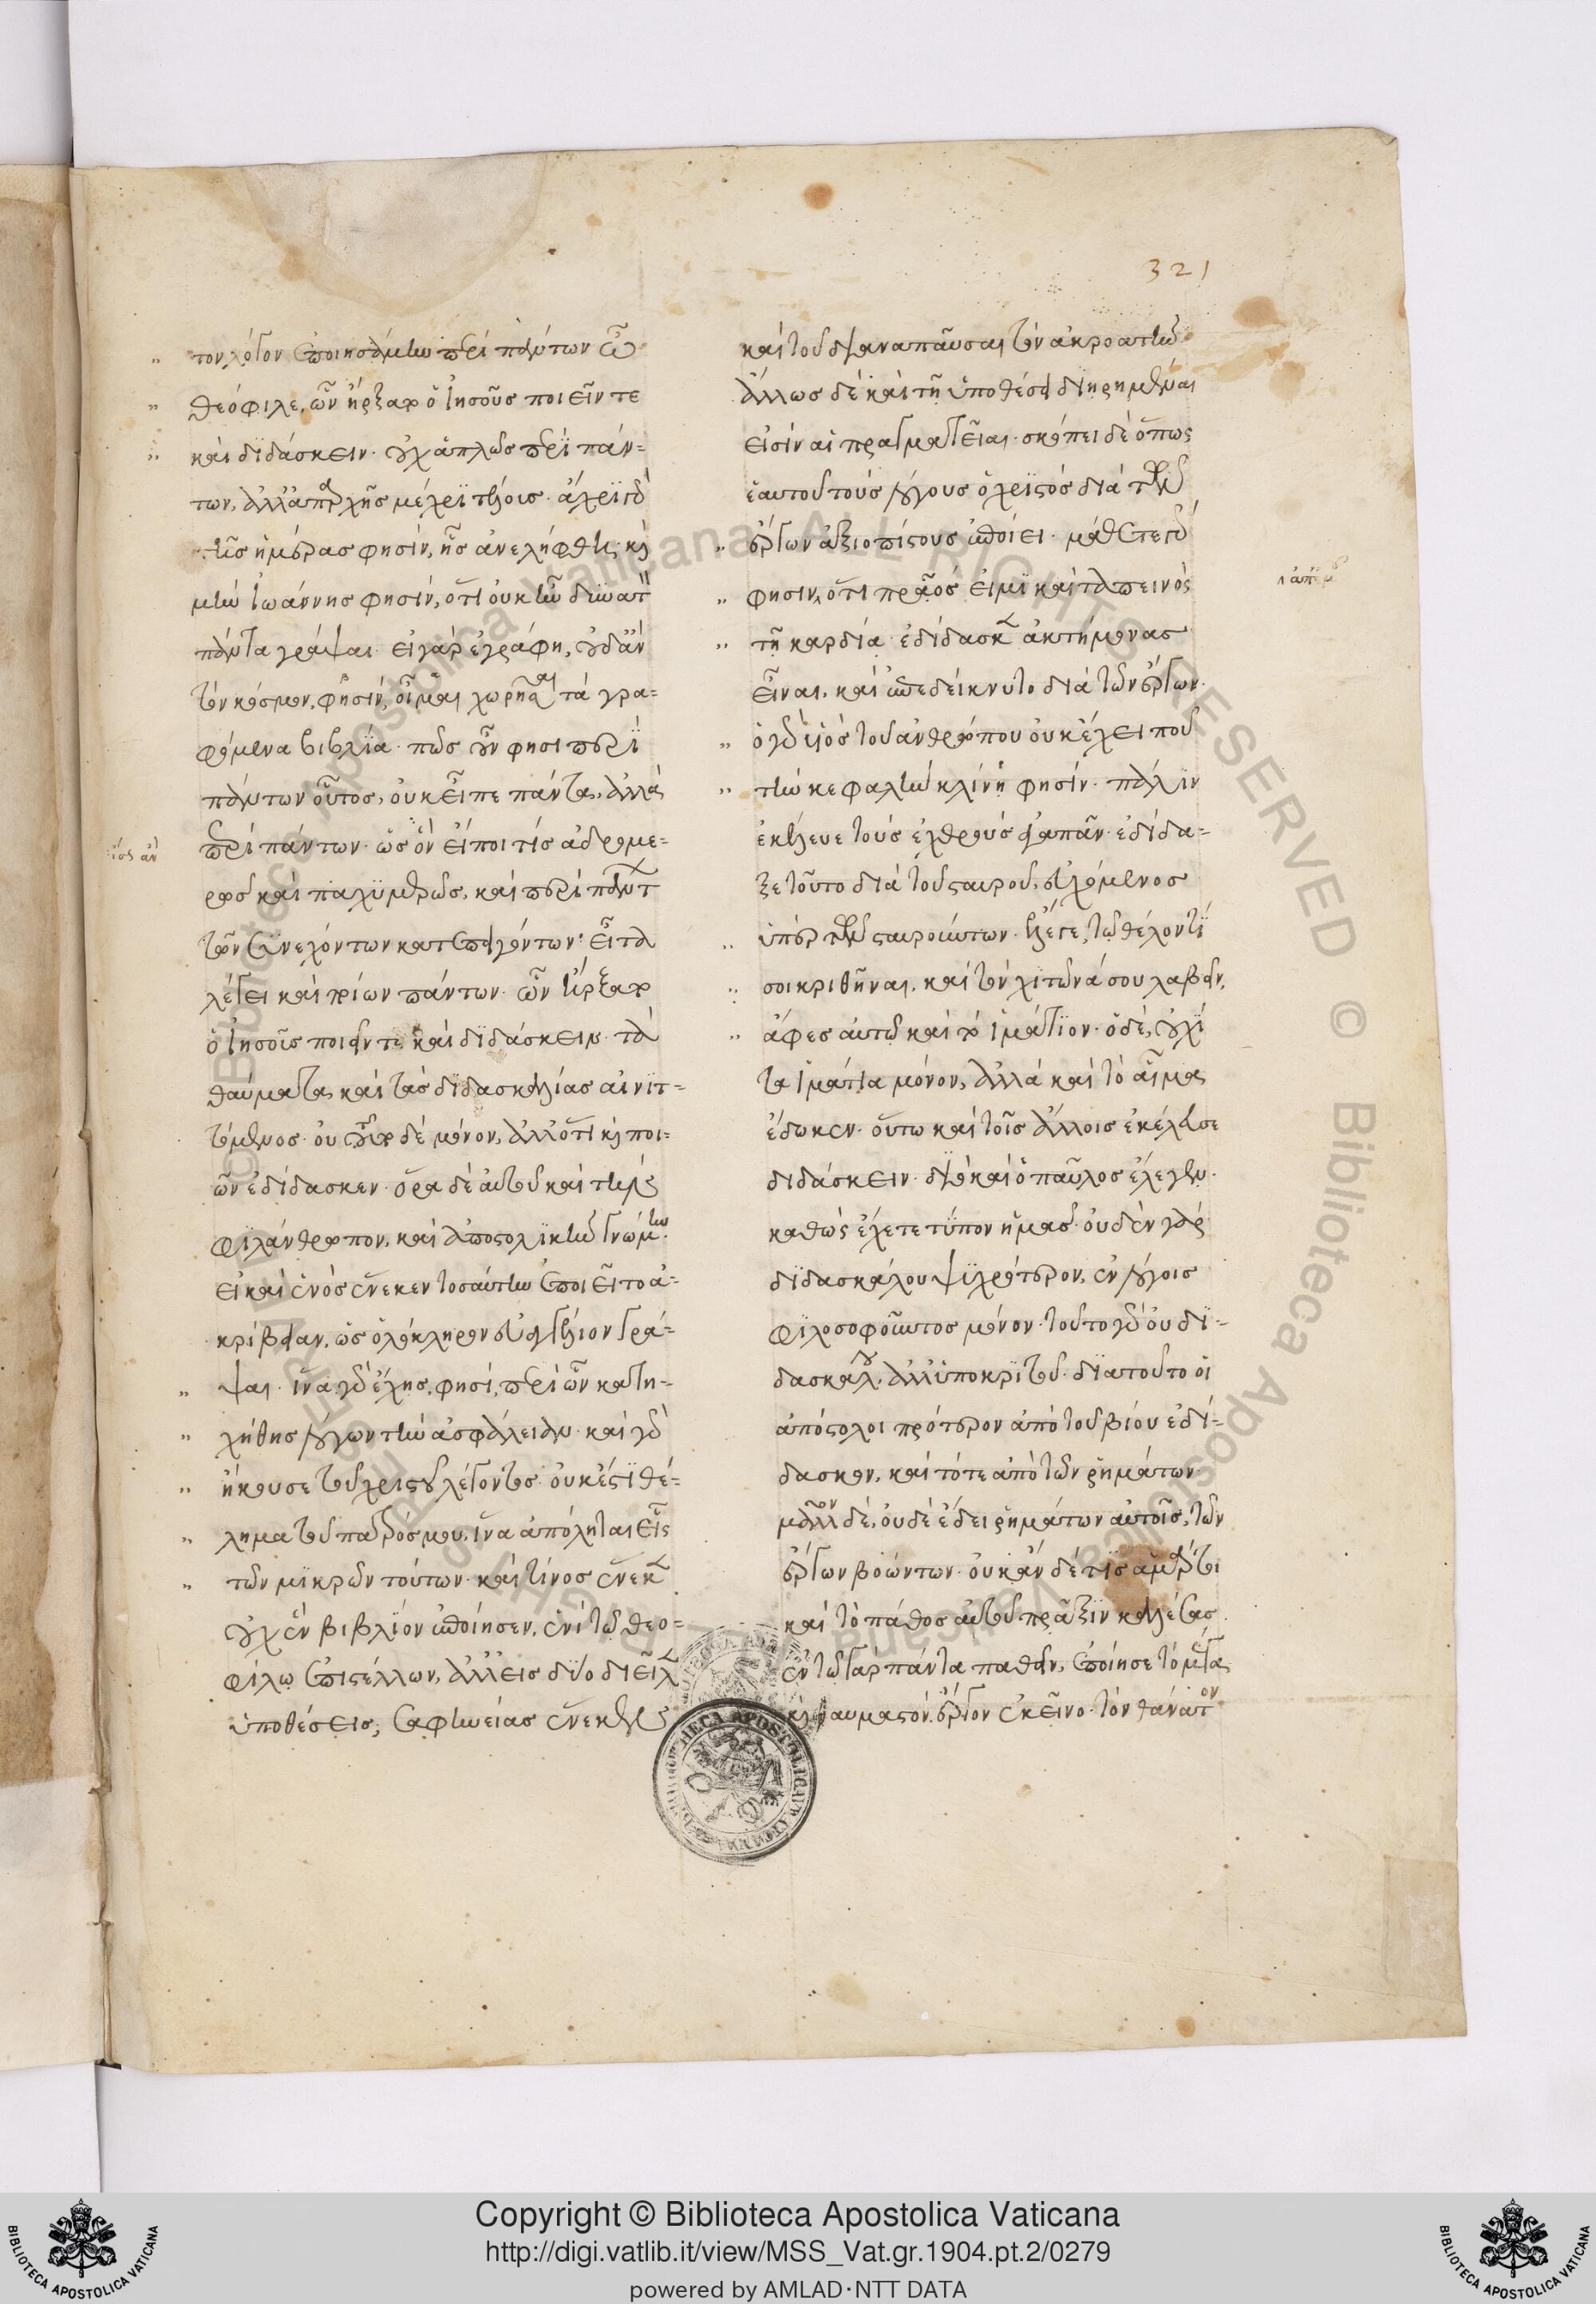 321
τον λόγον ἐποιησάμην περὶ πάντων ὦ
θεόφιλε, ὧν ἤρξατο ὁ Ἰησοῦς ποιεῖν τε
καὶ διδάσκειν. οὐχ ἁπλῶς περὶ πάν-
των, ἀλλ' ἀπ' ἀρχῆς μέχρι τέλους. ἄχρι γὰρ
τῆς ἡμέρας φησὶν, ἧς ἀνελήφθη. καὶ
μὴν Ἰωάννης φησὶν, ὅτι οὐκ ἦν δυνατὸν
πάντα γράψαι. εἰ γὰρ ἐγράφη, οὐδ' ἂν
τὸν κόσμον, φησὶν, οἶμαι χωρῆσαι τὰ γρα-
φόμενα βιβλία. πῶς οὖν φησι περὶ
πάντων οὗτος, οὐκ εἶπε πάντα, ἀλλὰ
περὶ πάντων. ὡς ὂν εἴποι τίς ἁδρομε-
ρῶς καὶ παχυμερῶς, καὶ περὶ πάντων
τῶν συνεχόντων κατεπειγόντων. εἶτα
λέγει καὶ πάντων. ὧν ἤρξατο
ὁ Ἰησοῦς ποιεῖν τε καὶ διδάσκειν. τὰ
θαύματα καὶ τὰς διδασκαλίας αἰνιτ-
τόμενος. οὐ δὲ μόνον, ἀλλ' ὅτι καὶ ποι-
ῶν ἐδίδασκεν. ὅρα δὲ αὐτοῦ καὶ τὴν
φιλάνθρωπον, καὶ ἀποστολικὴν γνώμην.
εἰ καὶ ἑνὸς ἕνεκεν τοσαύτην ἐποιεῖτο ἀ-
κρίβειαν, ὡς ὁλόκληρον εὐαγγέλιον γρά-
ψαι. ἵνα γὰρ ἔχῃς, φησὶ, περὶ ὧν κατη-
χήθης λόγων τὴν ἀσφάλειαν. καὶ γὰρ
ἤκουσε τοῦ χριστοῦ λέγοντος. οὐκ ἔστι θέ-
λημα τοῦ πατρός μου, ἵνα ἀπόληται εἷς
τῶν μικρῶν τούτων. καὶ τίνος ἕνεκεν
οὐχ ἓν βιβλίον ἐποίησεν, ἑνὶ τῷ θεο-
φίλῳ ἐπιστέλλων, ἀλλ' εἰς δύο διεῖλεν
ὑποθέσεις; σαφηνείας ἕνεκεν
ὡς ἂν
καὶ τοῦ διαναπαῦσαι τὸν ἀκροατήν.
ἄλλως δὲ καὶ τῇ ὑποθέσει διῃρημέναι
εἰσὶν αἱ πραγματεῖαι. σκόπει δὲ ὅπως
ἑαυτοῦ τοὺς λόγους ὁ χριστὸς διὰ τῶν
ἔργων ἀξιοπίστους ἐποίει. μάθετε γὰρ
φησιν, ὅτι πρᾶός εἰμι καὶ ταπεινὸς
τῇ καρδίᾳ. ἐδίδασκεν ἀκτήμονας
εἶναι, καὶ ἐπεδείκνυτο διὰ τῶν ἔργων.
ὁ γὰρ υἱὸς τοῦ ἀνθρώπου οὐκ ἔχει ποῦ
τὴν κεφαλὴν κλίνῃ φησίν. πάλιν
ἐκέλευε τοὺς ἐχθροὺς ἀγαπᾶν. ἐδίδα-
ξε τοῦτο διὰ τοῦ σταυροῦ, εὐχόμενος
ὑπὲρ τῶν σταυρούντων. ἔλεγε, τῷ θέλοντί
σοι κριθῆναι, καὶ τὸν χιτῶνά σου λαβεῖν,
ἄφες αὐτῷ καὶ τὸ ἱμάτιον. ὁ δὲ, οὐχὶ
τὰ ἱμάτια μόνον, ἀλλὰ καὶ τὸ αἷμα
ἔδωκεν. οὕτω καὶ τοῖς ἄλλοις ἐκέλευσε
διδάσκειν. διὸ καὶ ὁ παῦλος ἔλεγεν.
καθὼς ἔχετε τύπον ἡμᾶς. οὐδὲν γὰρ
διδασκάλου ψυχρότερον, ἐν λόγοις
φιλοσοφοῦντος μόνον. τοῦτο γὰρ οὐ δι-
δασκάλου, ἀλλ' ὑποκριτοῦ. διὰ τοῦτο οἱ
ἀπόστολοι πρότερον ἀπὸ τοῦ βίου ἐδί-
δασκον, καὶ τότε ἀπὸ τῶν ῥημάτων.
μᾶλλον δὲ, οὐδὲ ἔδει ῥημάτων αὐτοῖς, τῶν
ἔργων βοώντων. οὐκ ἂν δέ τις ἁμάρτοι
καὶ τὸ πάθος αὐτοῦ πρᾶξιν καλέσας.
ἐν τῷ γὰρ πάντα παθεῖν, ἐποίησε τὸ μέγα
καὶ θαυμαστὸν ἔργον ἐκεῖνο. τὸν θάνατον
ἀπ' ἐμοῦ
Copyright © Biblioteca Apostolica Vaticana
http://digi.vatlib.it/view/MSS_Vat.gr.1904.pt.2/0279
powered by AMLAD·NTT DATA
BIBLIOTECA APOSTOLICA VATICANA
BIBLIOTECA APOSTOLICA VATICANA